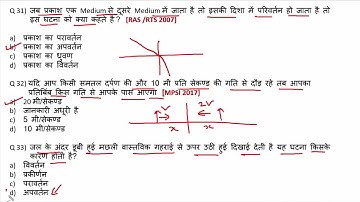 Q 31) जब प्रकाश एक Medium से दूसरे Medium में जाता है तो इसकी दिशा में परिवर्तन हो जाता है तो
इस घटना को क्या कहते है ? [RAS /RTS 2007]
a) प्रकाश का परावर्तन
b) प्रकाश का अपवर्तन
c) प्रकाश का ध्रुवण
d) प्रकाश का विवर्तन
Q 32) यदि आप किसी समतल दर्पण की और 10 मी प्रति सेकण्ड की गति से दौड़ रहे तब आपका
प्रतिबिंब किस गति से आपके पास आएगा [MPSI 2017]
a) 20 मी/सेकण्ड
b) जानकारी अधूरी है
c) 5 मी/सेकण्ड
d) 10 मी/सेकण्ड
V 2V
x x
Q 33) जल के अंदर डूबी हुई मछली वास्तविक गहराई से ऊपर उठी हुई दिखाई देती है यह घटना किसके
कारण होता है?
a) विवर्तन
b) प्रकीर्णन
c) परावर्तन
d) अपवर्तन